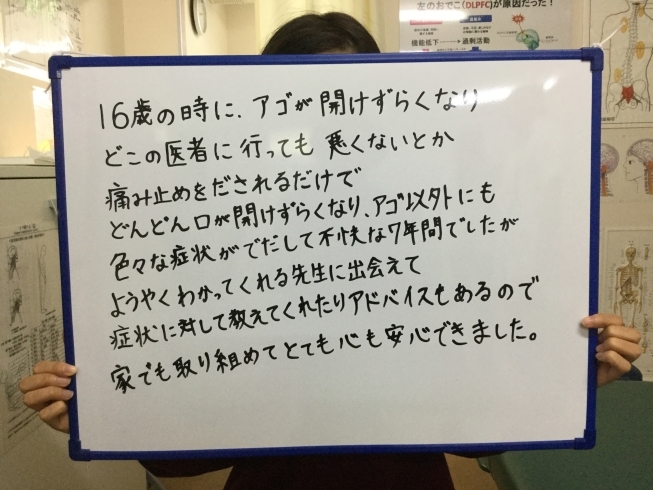 左のおでこ(DLPFC)が原因だった!
機能低下 過剰活動
16歳の時に、アゴが開けずらくなり
どこの医者に行っても悪くないとか
痛み止めをだされるだけで
どんどん口が開けずらくなり、アゴ以外にも
色々な症状がでだして不快な7年間でしたが
ようやくわかってくれる先生に出会えて
症状に対して教えてくれたりアドバイスもあるので
家でも取り組めてとても心も安心できました。